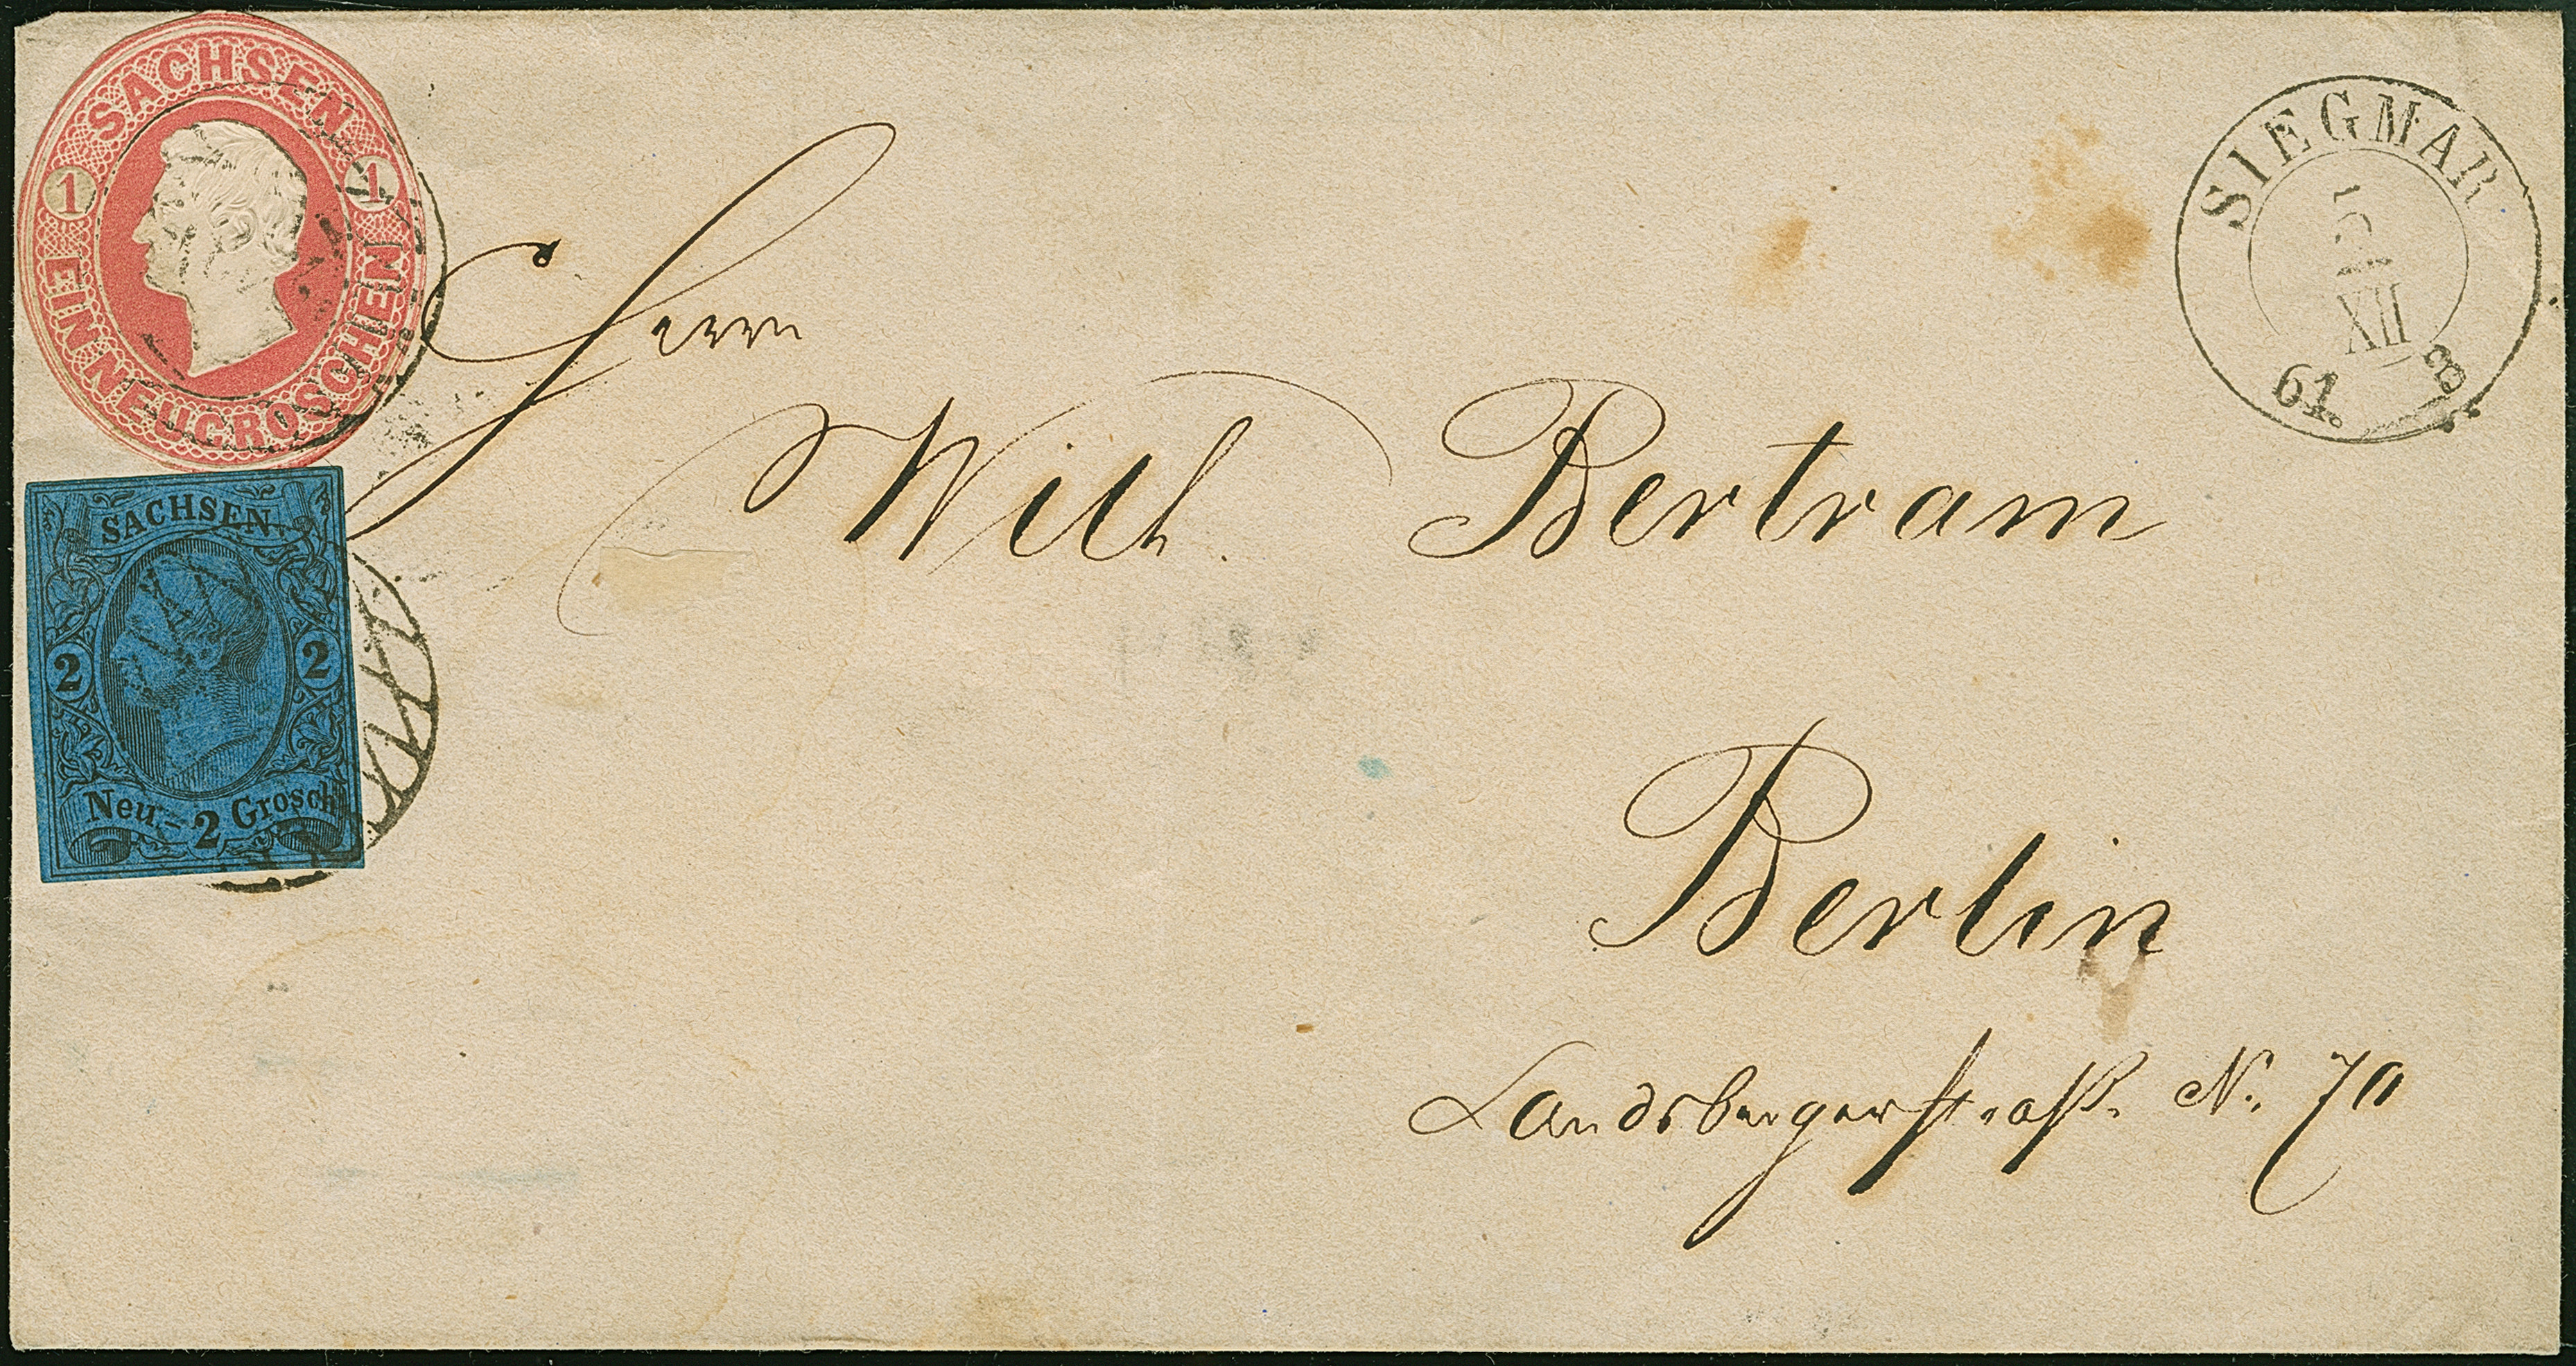 SACHSEN
1 1
EIN NEUGROSCHEN
SIEGMAR
5
XII
61. 8
Herrn
Wilh. Bertram
SACHSEN
2 2
Neu-2 Grosch
Berlin
Landsbergerstraß. No. 70